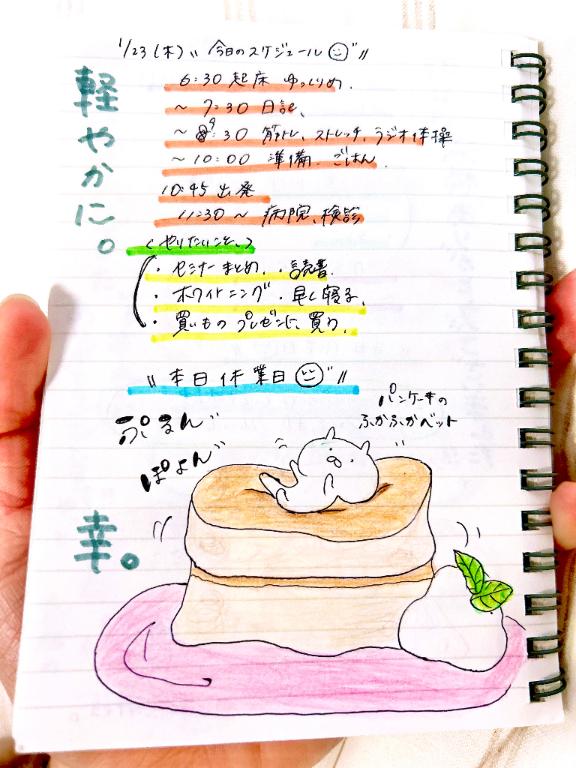 1/23(木) 〃今日のスケジュール〃
軽やかに。
6:30 起床 ゆっくりめ.
～7:30 日記、
～9:30 筋トレ、ストレッチ、ラジオ体操
～10:00 準備、ごはん、
10:45 出発
11:30～ 病院、検診
(やりたいこと、)
・セミナーまとめ、・読書、
・ホワイトニング ・早く寝る、
・買いもの プレゼント、買う、
〃本日休業日〃
パンケーキの
ふかふかベット
ぷるん〃
ぽよん〃
幸。